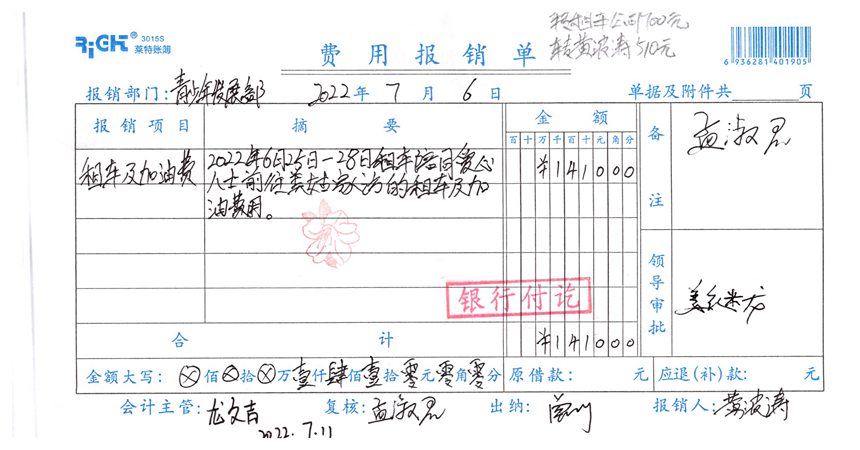 RIGHT 3015S
莱特账簿
转租车公司700元
转黄波涛510元
费用报销单
6 936281 401905
报销部门: 青少年发展部 2022年7月6日 单据及附件共 页
报销项目 摘要 金额 备注
百十万千百十元角分
租车及加油费 2022年6月25日-28日租车陪同爱心 ¥141000 孟淑君
人士前往美姑家访的租车及加
油费用。
银行付讫
领导审批
合计 ¥141000
金额大写: ⊗佰⊗拾⊗万壹仟肆佰壹拾零元零角零分 原借款: 元 应退(补)款: 元
会计主管: 龙文吉 复核: 孟淑君 出纳: 报销人: 黄波涛
2022.7.11